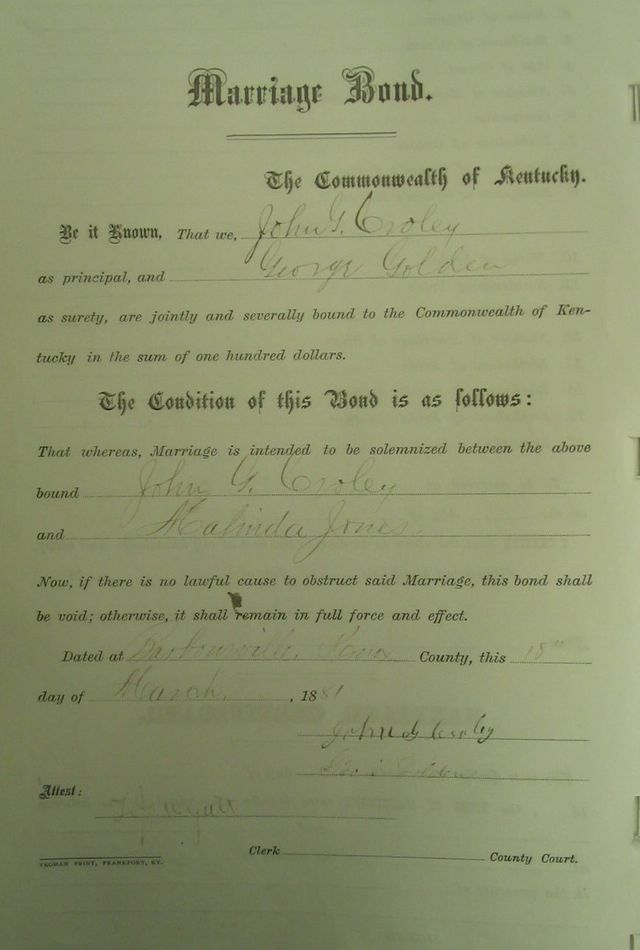 Marriage Bond.
The Commonwealth of Kentucky.
Be it Known, That we, John G. Croley
as principal, and George Golden
as surety, are jointly and severally bound to the Commonwealth of Ken-
tucky in the sum of one hundred dollars.
The Condition of this Bond is as follows:
That whereas, Marriage is intended to be solemnized between the above
bound John G. Croley
and Malinda Jones.
Now, if there is no lawful cause to obstruct said Marriage, this bond shall
be void; otherwise, it shall remain in full force and effect.
Dated at Barbourville, Knox County, this 18th
day of March, , 1881
John G Croley
Attest:
Clerk County Court.
YEOMAN PRINT, FRANKFORT, KY.